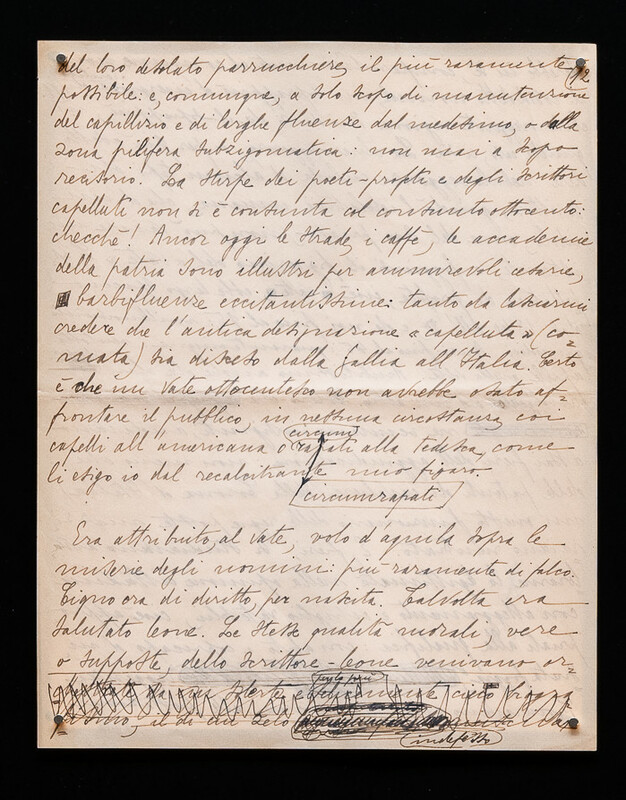 del loro desolato parrucchiere, il più raramente
12
possibile: e, comunque, a solo scopo di manutenzione
del capillizio e di larghe fluenze dal medesimo, o dalla
zona pilifera subzigomatica: non mai a scopo
recisorio. La stirpe dei poeti-profeti e degli scrittori
capelluti non si è consunta col consunto ottocento:
checchè! Ancor oggi le strade, i caffè, le accademie
della patria sono illustri per ammirevoli cesarie,
barbifluenze eccitantissime: tanto da lasciarmi
credere che l'antica designazione « capelluta » (co=
mata) sia discesa dalla Gallia all'Italia. Certo
è che un Vate ottocentesco non avrebbe osato af=
frontare il pubblico, in nessuna circostanza, coi
circum
capelli all'americana o rapati alla tedesca, come
li esigo io dal recalcitrante mio figaro.
circumrapati
Era attribuito, al Vate, volo d'aquila sopra le
miserie degli uomini: più raramente di falco.
Cigno era di diritto, per nascita. Talvolta era
salutato leone. Le stesse qualità morali, vere
o supposte, dello scrittore-leone venivano or=
per lo più
il di cui zelo
indefesso